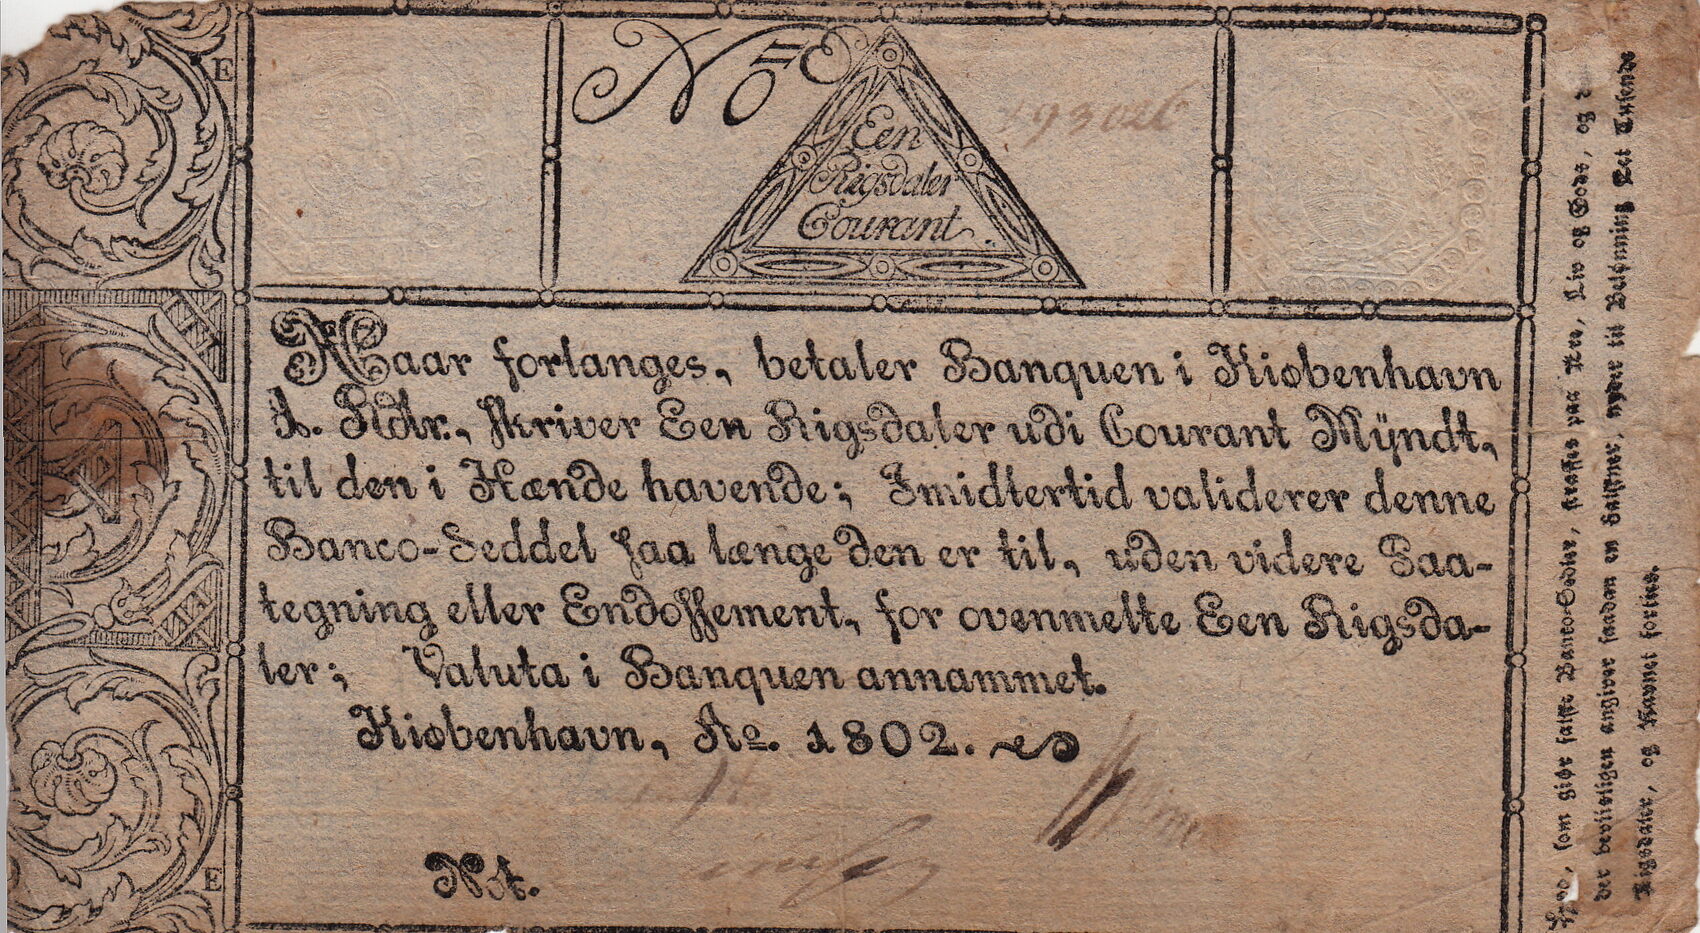 E
No E
193026
Een
Rigsdaler
Courant
Naar forlanges, betaler Banquen i Kiøbenhavn
1. Rdlr., skriver Een Rigsdaler udi Courant Mÿndt,
til den i Hænde havende; Imidlertid validerer denne
Banco-Seddel saa længe den er til, uden videre Paa-
tegning eller Endossement, for ovenmelte Een Rigsda-
ler; Valuta i Banquen annammet.
Kiøbenhavn, Ao. 1802.
Nt.
E
som sig falske Banco-Sedler, Liv og Gods,
der beviisligen angiver saadan en Falskner, nyder til Belønning Eet Tusende
Rigsdaler, og Navnet forties.